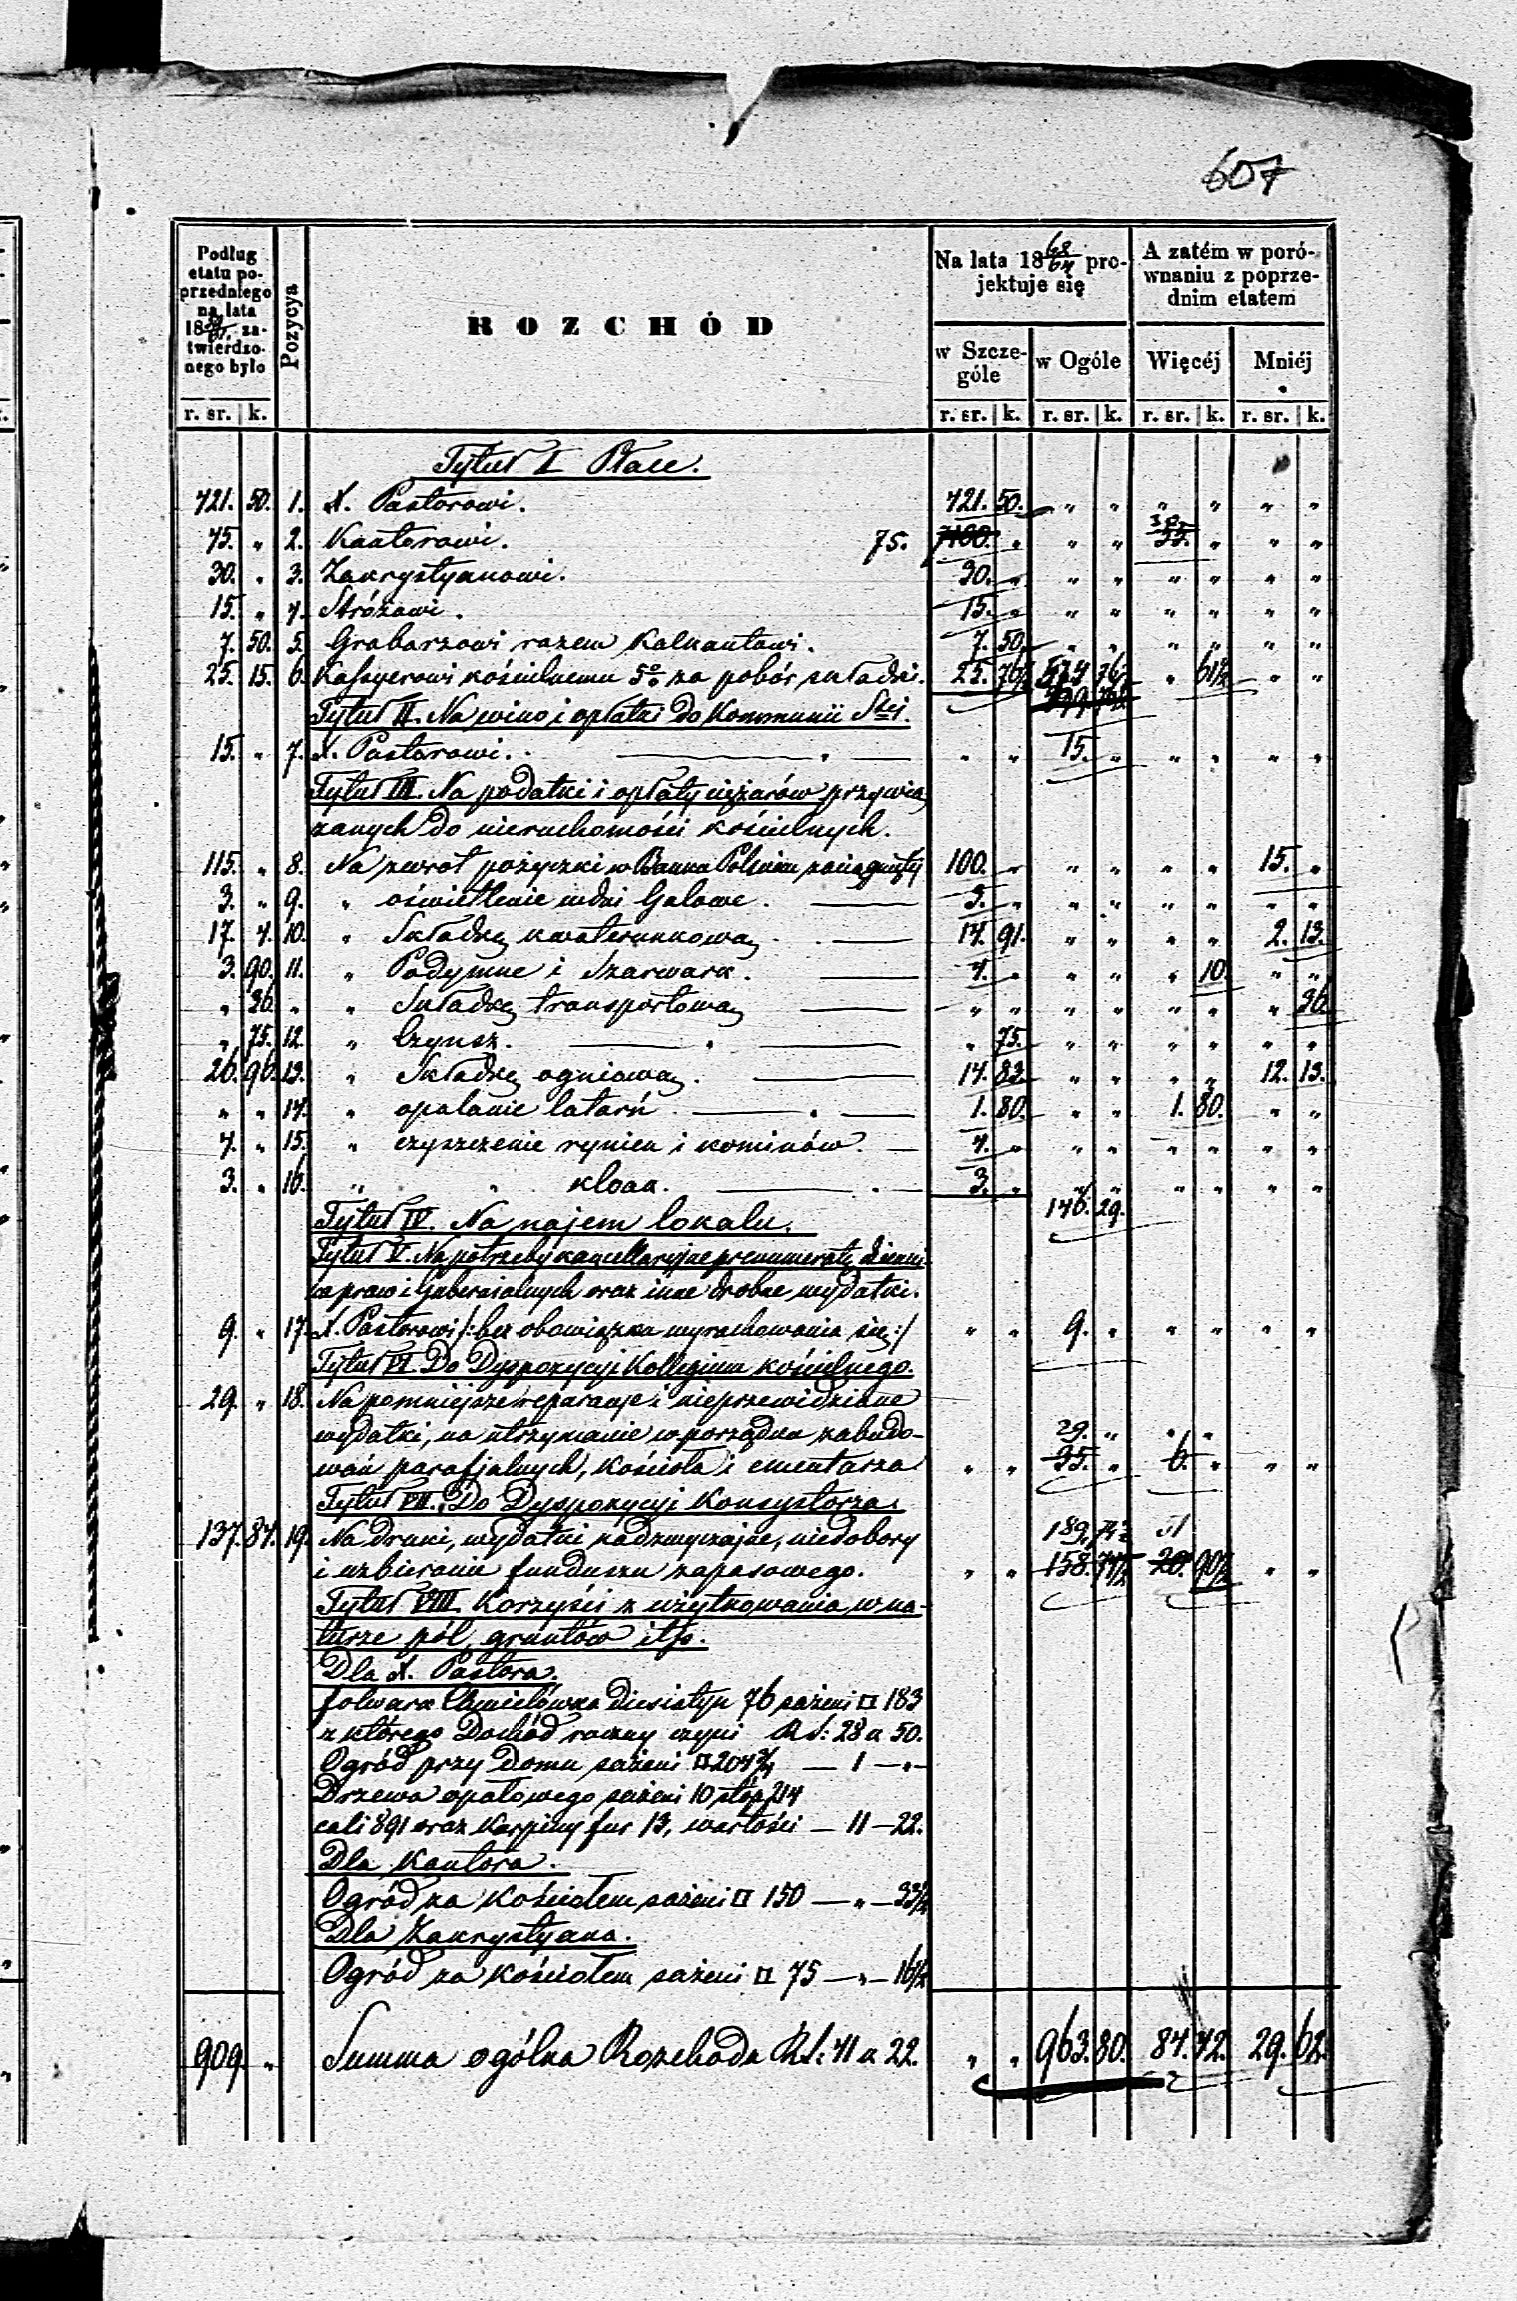 607
Podług etatu poprzedniego na lata 18 zatwierdzonego było
Pozycya
ROZCHÓD
Na lata 18 62/64 projektuje się
A zatém w porównaniu z poprzednim etatem
w Szczególe
w Ogóle
Więcéj
Mniéj
r. sr. k. r. sr. k. r. sr. k. r. sr. k. r. sr. k.
Tytuł I Płace.
421. 50. 1. X. Pastorowi. 421. 50. " " " " " "
75. " 2. Kantorowi. 75. " " " " " "
30. " 3. Zakrystyanowi. 30. " " " " " " "
15. " 4. Stróżowi. 15. " " " " " " "
7. 50. 5. Grabarzowi razem Kalkantowi. 7. 50. " " " " " "
25. 15. 6. Kassyerowi kościelnemu 5% za pobór składki. 25. 76½ 574 76½ " 61½ " "
Tytuł II. Na wino i opłatki do Kommunii Stej.
15. " 7. X. Pastorowi. " " 15. " " " " "
Tytuł III. Na podatki i opłaty ciężarów przywią
zanych do nieruchomości kościelnych.
115. " 8. Na zwrot pożyczki w Banku Polskim zaciągnięty 100. " " " " " 15. "
3. " 9. " oświetlenie w dni Galowe. 3. " " " " " " "
17. 4. 10. " Składkę kwaterunkową. 14. 91. " " " " 2. 13.
3. 90. 11. " Podymne i Szarwark. 4. " " " " 10 " "
" 36. " " Składkę transportową " " " " " " " 36.
" 75. 12. " Czynsz. " 75. " " " " " "
26. 96. 13. " Składkę ogniową. 14. 83. " " " " 12. 13.
" " 14. " opalanie latarń. 1. 80. " " 1. 80. " "
4. " 15. " czyszczenie rynien i kominów. 4. " " " " " " "
3. " 16. " " kloak. 3. " " " " " " "
146. 29.
Tytuł IV. Na najem lokalu.
Tytuł V. Na potrzeby kancellaryjne prenumeratę dzienni
ka praw i Gubernialnych oraz inne drobne wydatki.
9. " 17. X. Pastorowi /: bez obowiązku wyrachowania się :/ " " 9. " " " " "
Tytuł VI. Do Dyspozycyi Kollegium kościelnego.
29. " 18. Na pomniejsze reparacje i nieprzewidziane
wydatki, na utrzymanie w porządku zabudo- 29. " " "
wań parafjalnych, kościoła i cmentarza " " 35. " 6. " " "
Tytuł VII. Do Dyspozycyi Konsystorza.
137. 84. 19. Na Druki, wydatki nadzwyczajne, niedobory 189. 74½ 51
i uzbieranie funduszu zapasowego. " " 158. 74½ 20. 90½ " "
Tytuł VIII. Korzyści z użytkowania w na-
turze pól, gruntów itp.
Dla X. Pastora.
folwark Chmielówka Diesiatyn 76 sażeni □ 183
z którego Dochód roczny czyni Rs: 28 k 50.
Ogród przy Domu sażeni □ 204¾ — 1 — " —
Drzewa opałowego sażeni 10 stóp 214
cali 891 oraz Karpiny fur 13, wartości — 11 — 22.
Dla Kantora.
Ogród za kościołem sażeni □ 150 — " — 33½
Dla Zakrystyana.
Ogród za kościołem sażeni □ 75 — " — 16½
909. " Summa ogólna Rozchodu Rs: 41 k 22. " " 963. 80. 84. 42. 29. 62.